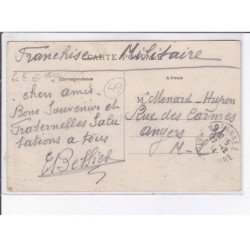 Franchise Militaire
CARTE POSTALE
Correspondance
Adresse
chers amis
Bons Souvenirs et
Fraternelles Salu
tations a tous
E Belliot
49
Mr Menard-Huron
Rue des Carmes
Angers
M-